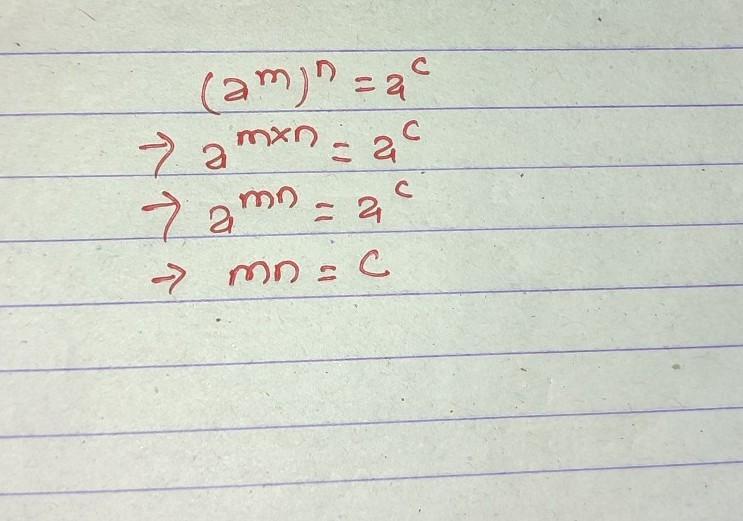 (a^m)^n = a^c
→ a^{m×n} = a^c
→ a^{mn} = a^c
→ mn = c